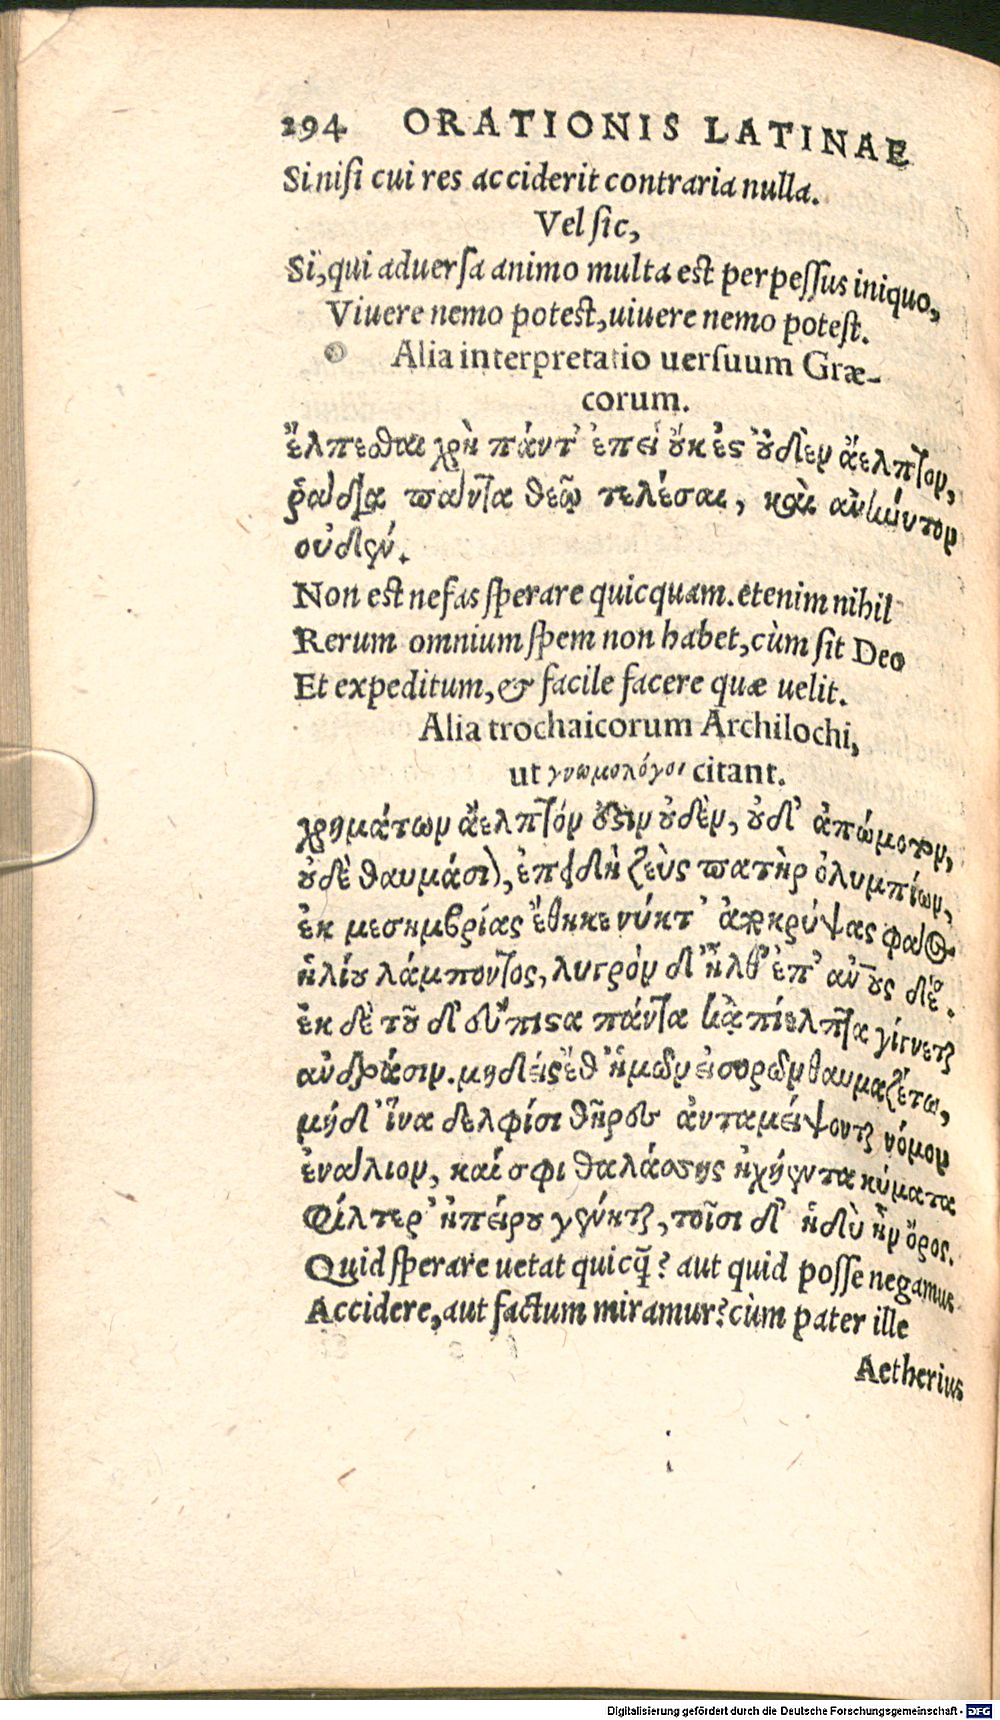 294 ORATIONIS LATINAE
Si nisi cui res acciderit contraria nulla.
Vel sic,
Si, qui aduersa animo multa est perpessus iniquo,
Viuere nemo potest, uiuere nemo potest.
Alia interpretatio uersuum Græ-
corum.
ἔλπεσθαι χρὴ πάντ' ἐπεὶ οὐκ ἔς' οὐδὲν ἄελπτον,
ῥᾴδια πάντα θεῷ τελέσαι, καὶ ἀνήνυτον
οὐδέν.
Non est nefas sperare quicquam. etenim nihil
Rerum omnium spem non habet, cùm sit Deo
Et expeditum, & facile facere quæ uelit.
Alia trochaicorum Archilochi,
ut γνωμολόγοι citant.
χρημάτων ἄελπτόν οὐδὲν, οὐδ' ἀπώμοτον,
οὐδὲ θαυμάσιον, ἐπειδὴ ζεὺς πατὴρ ὀλυμπίων,
ἐκ μεσημβρίας ἔθηκε νύκτ' ἀποκρύψας φάος
ἡλίου λάμποντος, λυγρὸν δ' ἦλθ' ἐπ' αὐτοὺς δέος.
ἐκ δὲ τοῦ πάντα κἀπίελπτα γίγνεται
ἀνδράσιν. μηδεὶς ἔθ' ἡμῶν εἰσορῶν θαυμαζέτω,
μήδ' ἵνα δελφίσι θῆρες ἀνταμείψονται νόμον
ἐνάλιον, καί σφι θαλάσσης ἠχήεντα κύματα
φίλτερ' ἠπείρου γένηται, τοῖσι δ' ἡδὺ ἦν ὄρος.
Quid sperare uetat quicq̃? aut quid posse negamus
Accidere, aut factum miramur? cùm pater ille
Aetherius
Digitalisierung gefördert durch die Deutsche Forschungsgemeinschaft - DFG